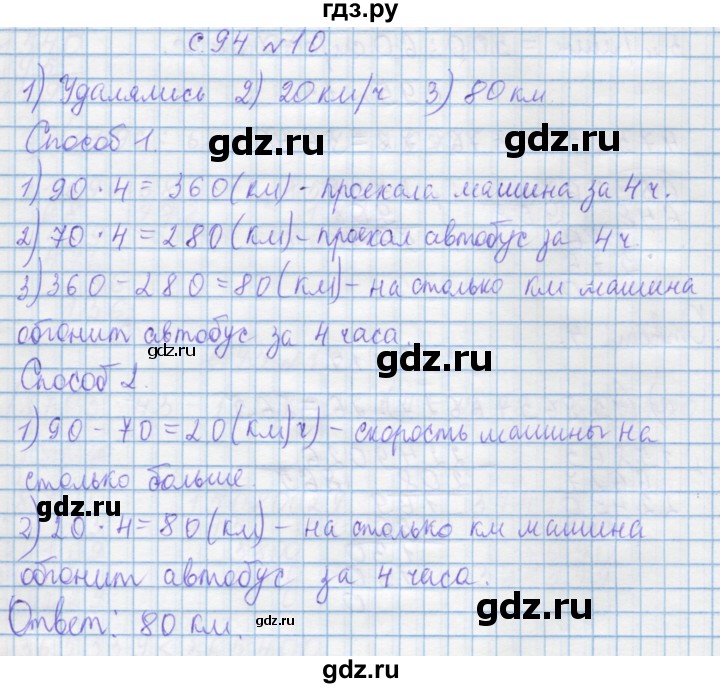 гдз.ру
с.94 №10
1) Удалялись 2) 20 км/ч 3) 80 км.
Способ 1.
gdz.ru
gdz.ru
1) 90 · 4 = 360 (км) - проехала машина за 4 ч.
2) 70 · 4 = 280 (км) - проехал автобус за 4 ч
gdz.ru
gdz.ru
3) 360 - 280 = 80 (км) - на столько км машина
обгонит автобус за 4 часа.
gdz.ru
gdz.ru
Способ 2.
1) 90 - 70 = 20 (км/ч) - скорость машины на
gdz.ru
столько больше.
gdz.ru
gdz.ru
2) 20 · 4 = 80 (км) - на столько км машина
обгонит автобус за 4 часа.
gdz.ru
Ответ: 80 км.
gdz.ru
gdz.ru